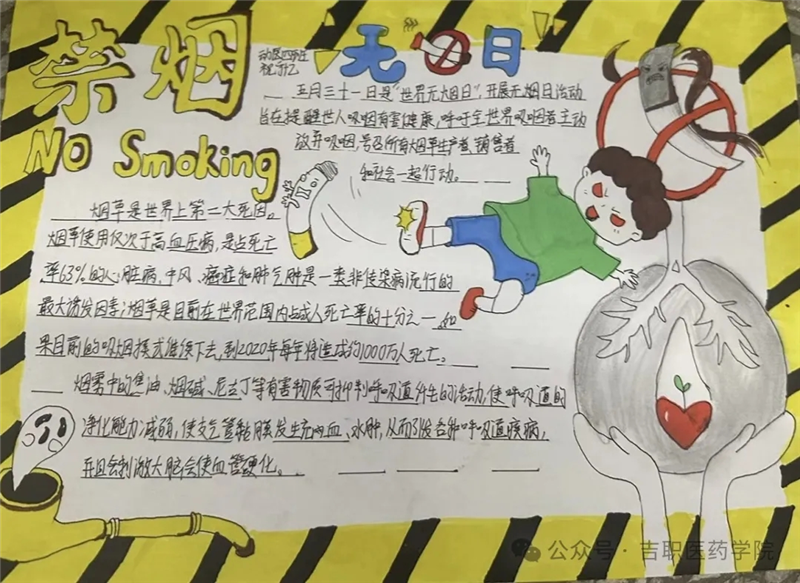 禁烟
No Smoking
无 日
五月三十一日是“世界无烟日”,开展无烟日活动
旨在提醒世人吸烟有害健康,呼吁全世界吸烟者主动
放弃吸烟,号召所有烟草生产者、销售者
和社会一起行动。
烟草是世界上第二大死因。
烟草使用仅次于高血压病,是占死亡
率63%的心脏病、中风、癌症和肺气肿是一类非传染病流行的
最大诱发因素;烟草是目前在世界范围内占成人死亡率的十分之一,如
果目前的吸烟模式继续下去,到2020年每年将造成约1000万人死亡。
烟雾中的焦油、烟碱、尼古丁等有害物质可抑制呼吸道纤毛的活动,使呼吸道的
净化能力减弱,使支气管粘膜发生充血、水肿,从而引发各种呼吸道疾病,
并且会刺激大脑会使血管硬化。
公众号·吉职医药学院